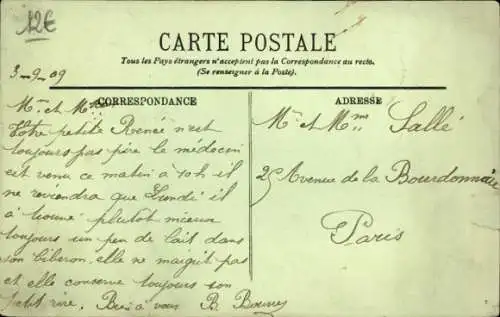 12€
CARTE POSTALE
Tous les Pays étrangers n'acceptent pas la Correspondance au recto.
(Se renseigner à la Poste).
3-9-09
CORRESPONDANCE
Mr et Mme
Votre petite Renée n'est
toujours pas pire le médecin
est venu ce matin à 10h il
ne reviendra que Lundi il
a trouvé plutot mieux
toujours un peu de lait dans
son biberon, elle ne maigrit pas
et elle conserve toujours son
petit rire. Bien à vous B.
ADRESSE
Mr et Mme Sallé
25 Avenue de la Bourdonnais
Paris